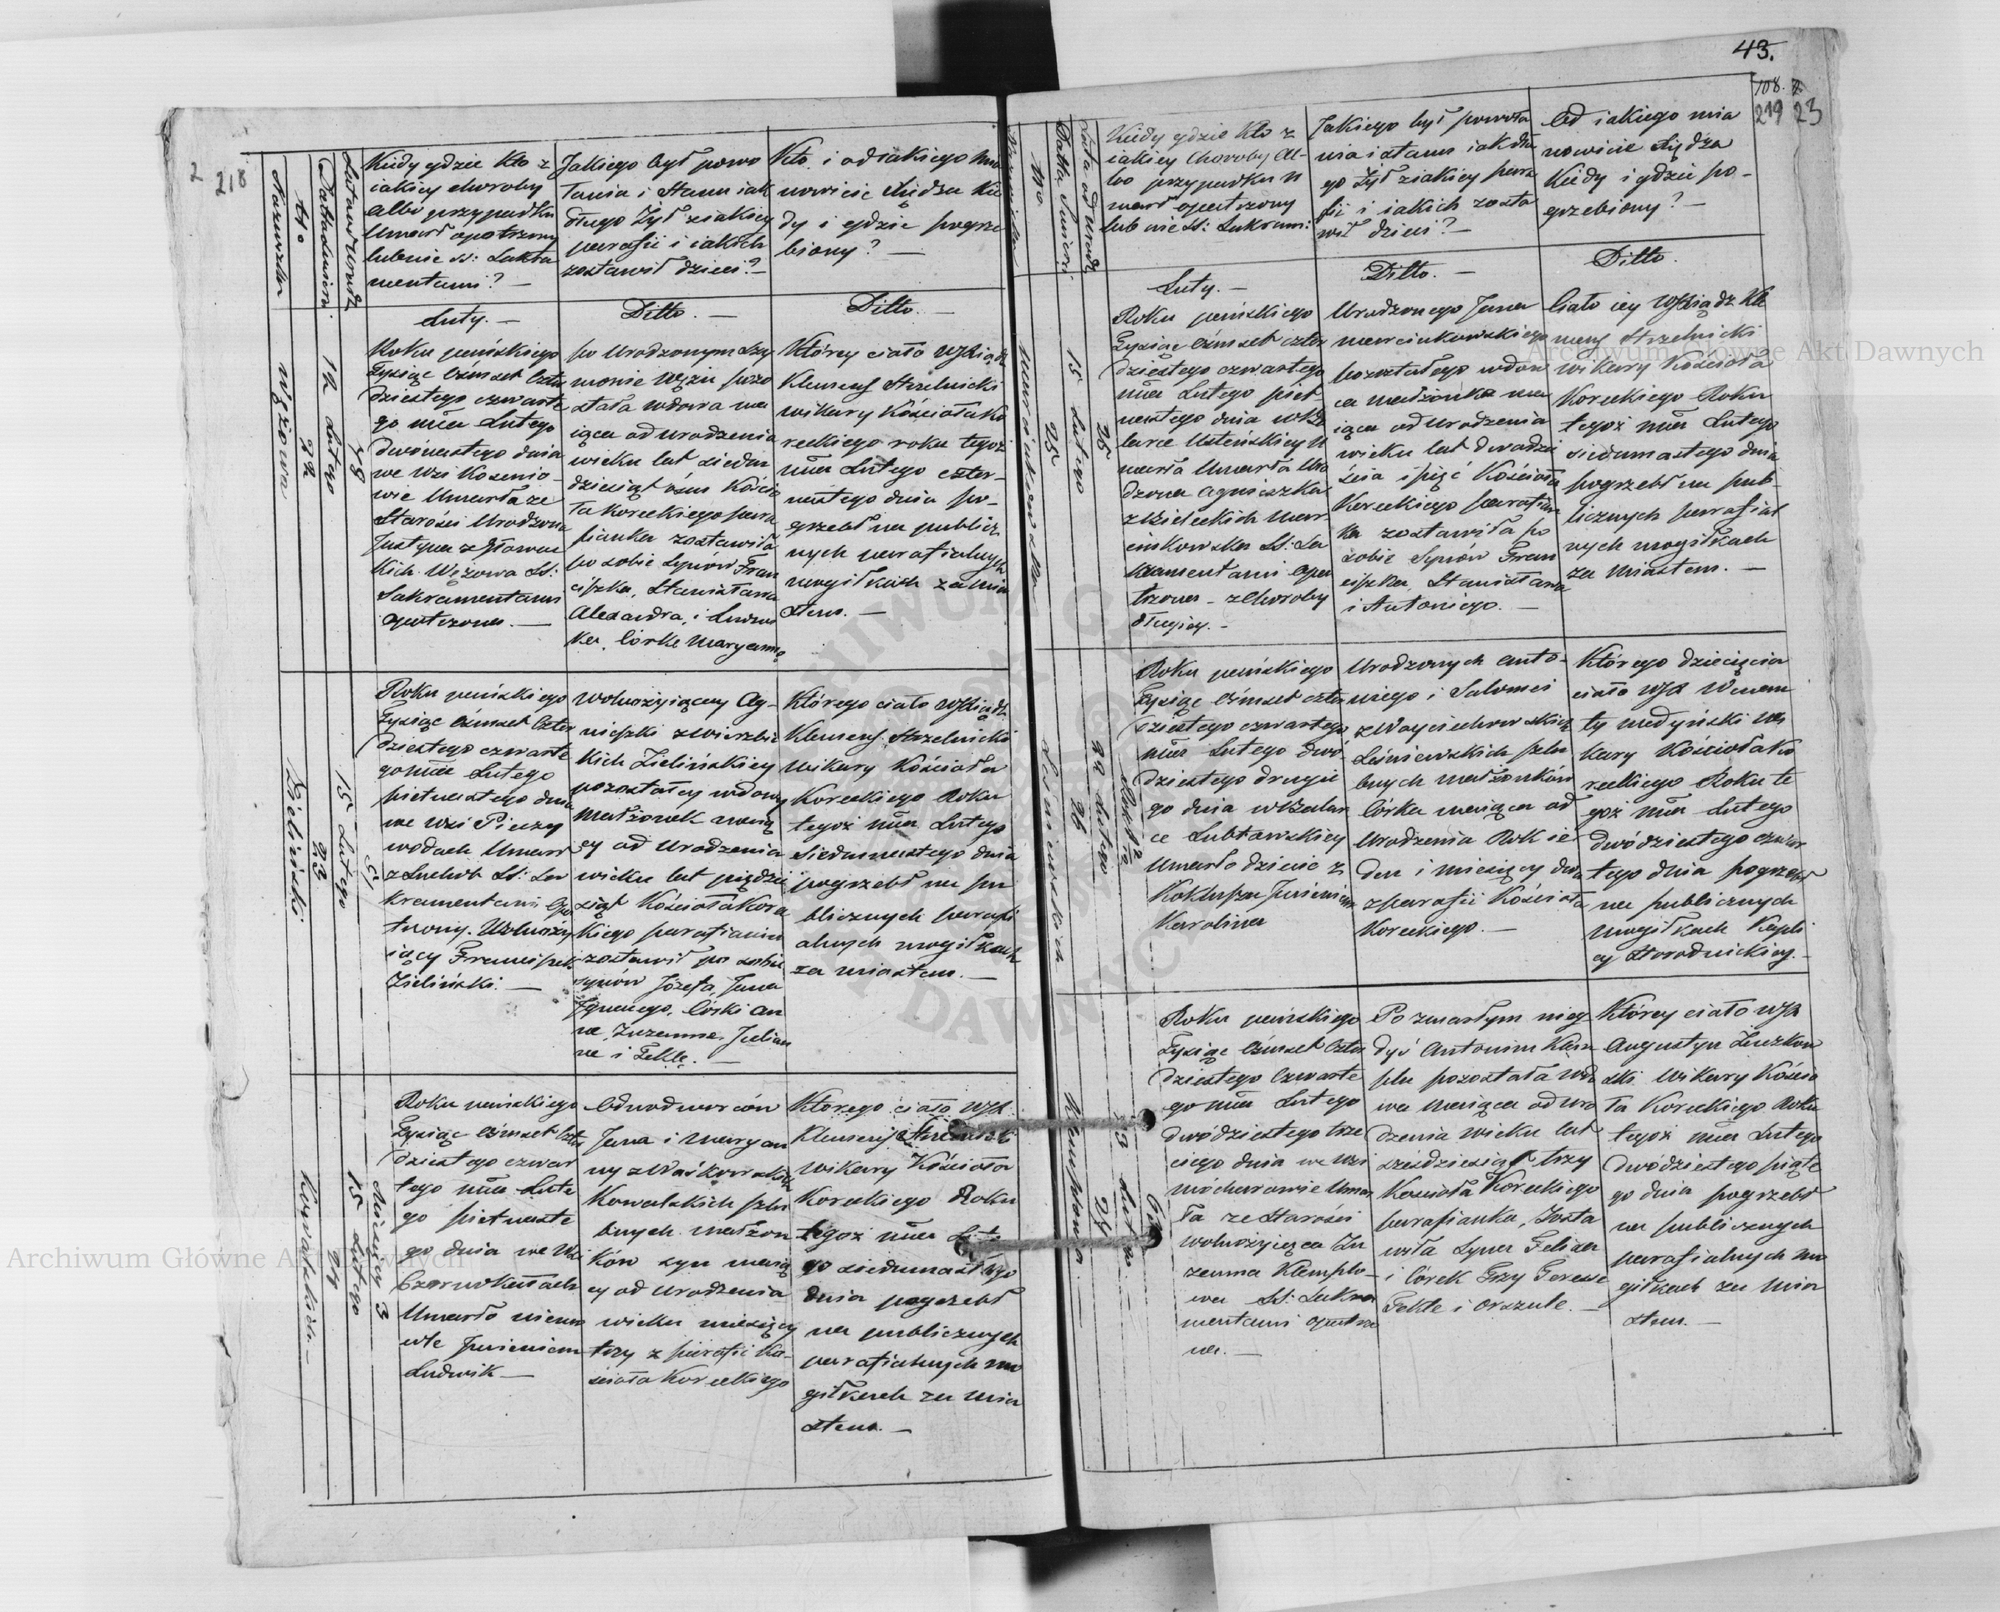 2 218
Nazwisko
No
Data śmierci
Lata od urodz:
Kiedy gdzie kto z
iakiey choroby
albo przypadku
Umarł opatrzony
lub nie SS: Sakra
mentami? —
Jakiego był powo
łania i stanu iak
długo żył z iakiey
parafii i iakich
zostawił dzieci? —
Kto i od iakiego mia
nowicie Xiędza kie
dy i gdzie pogrze
biony? —
Luty. —
Ditto. —
Ditto. —
Wężowa
22
12 Lutego
78
Roku pańskiego
Tysiąc ośmset Czter
dziestego czwarte
go mca Lutego
dwónastego dnia
we Wsi
Umarła ze
Starości Urodzona
Justyna z
kich Wężowa SS:
Sakramentami
opatrzona. —
po Urodzonym Szy
monie Wężu pozo
stała wdowa ma
iąca od urodzenia
wieku lat siedm
dziesiąt ośm Kościo
ła Koreckiego para
fianka zostawiła
po sobie Synów Fran
ciszka, Stanisława
Alexandra, i Ludwi
ka, Córkę Maryannę
Którey ciało WJXiądz
Klemens Strzelnicki
wikary Kościoła Ko
reckiego roku tegoż
mca Lutego czter-
nastego dnia po-
grzebł na publicz
nych parafialnych
mogiłkach za mia
stem. —
Zieliński
23
15 Lutego
Roku pańskiego
Tysiąc ośmset Czter
dziestego czwarte
go mca Lutego
pietnastego dnia
we Wsi
wodach Umarł
z Suchot SS: Sa
kramentami Opa
trzony. Wolnoży
iący Franciszek
Zieliński. —
wolnożyiącey Ag-
nieszki z
kich Zielińskiey
pozostałey wdowy
małżonek maią
cy od urodzenia
wieku lat pięździe
siąt Kościoła Korec
kiego parafianin
zostawił po sobie
synów Józefa, Jana
Ignacego, Córki An
nę, Zuzannę, Julian
nę i Teklę. —
Którego ciało WJXiądz
Klemens Strzelnicki
Wikary Kościoła
Koreckiego Roku
tegoż mca Lutego
siedmnastego dnia
pogrzebł na pu
blicznych parafi
alnych mogiłkach
za miastem. —
24
15 Lutego
Miesięcy 3
Roku pańskiego
Tysiąc ośmset Czter
dziestego czwar
tego mca Lute
go pietnaste
go dnia we Wsi
Umarło niemo
wle Imieniem
Ludwik —
Odnodworców
Jana i Maryan
ny z
Kowalskich szlu
bnych małżon
ków syn maią
cy od urodzenia
wieku miesięcy
trzy z parafii Ko-
ścioła Koreckiego
Którego ciało WJX
Klemens Strzelnicki
Wikary Kościoła
Koreckiego Roku
tegoż mca Lute
go siedmnastego
dnia pogrzebł
na publicznych
parafialnych mo
giłkach za mia
stem. —
43.
108.
219 23
No
Data śmierci
Lata od urodz
Kiedy gdzie kto z
iakiey choroby al-
bo przypadku u
marł opatrzony
lub nie SS: Sakram:
Jakiego był powoła
nia i stanu iak dłu
go żył z iakiey para
fii i iakich zosta
wił dzieci? —
Od iakiego mia
nowicie Xiędza
Kiedy i gdzie po-
grzebiony? —
Luty. —
Ditto. —
Ditto.
25
15 Lutego
Roku pańskiego
Tysiąc ośmset czter
dziestego czwartego
mca Lutego piet
nastego dnia w
Usteńskiey u
marła Uro
dzona Agnieszka
z Bieleckich Mar
cinkowska SS: Sa
kramentami opa
trzona — z Choroby
długiey. —
Urodzonego Jana
Marcinkowskiego
pozostałego wdow
ca małżonka ma
iąca od urodzenia
wieku lat dwadzie
ścia i pięć Kościoła
Koreckiego parafian
ka zostawiła po
sobie Synów Fran
ciszka, Stanisława
i Antoniego. —
Ciało iey WJXiądz Kle
mens Strzelnicki
wikary Kościoła
Koreckiego Roku
tegoż mca Lutego
siedmnastego dnia
pogrzebł na pub-
licznych parafial
nych mogiłkach
za miastem. —
26
22 Lutego
Roku pańskiego
Tysiąc ośmset czter
dziestego czwartego
mca Lutego dwó-
dziestego drugie
go dnia w
Umarło dziecie z
Kokluszu Imieniem
Karolina
Urodzonych Anto-
niego i Salomei
z Woyciechowskich
Leśniewskich szlu
bnych małżonków
Córka maiąca od
Urodzenia Rok ie
den i miesięcy dwa
z parafii Kościoła
Koreckiego. —
Którego dziecięcia
ciało WJX
ty Medyński wi
kary Kościoła Ko
reckiego Roku te
goż mca Lutego
dwódziestego czwar
tego dnia pogrzebł
na publicznych
mogiłkach Kapli
cy Horodnickiey. —
27
23 Lutego
63
Roku pańskiego
Tysiąc ośmset Czter
dziestego Czwarte
go mca Lutego
dwódziestego trze
ciego dnia we Wsi
Umar
ła ze starości
wolnożyiąca Zu
zanna Klempo-
wa SS: Sakra
mentami opatrzo
na. —
Po zmarłym nieg
dyś Antonim
pozostała wdo
wa maiąca od uro
dzenia wieku lat
sześdziesiąt trzy
Kościoła Koreckiego
parafianka, Zosta
wiła Syna Felixa
i Córek Trzy Teressę
Teklę i Orszulę. —
Którey ciało WJX
Augustyn
ski Wikary Kościo
ła Koreckiego Roku
tegoż mca Lutego
dwódziestego piąte
go dnia pogrzebł
na publicznych
parafialnych mo
giłkach za mia
stem —
Archiwum Główne Akt Dawnych
Archiwum Główne Akt Dawnych